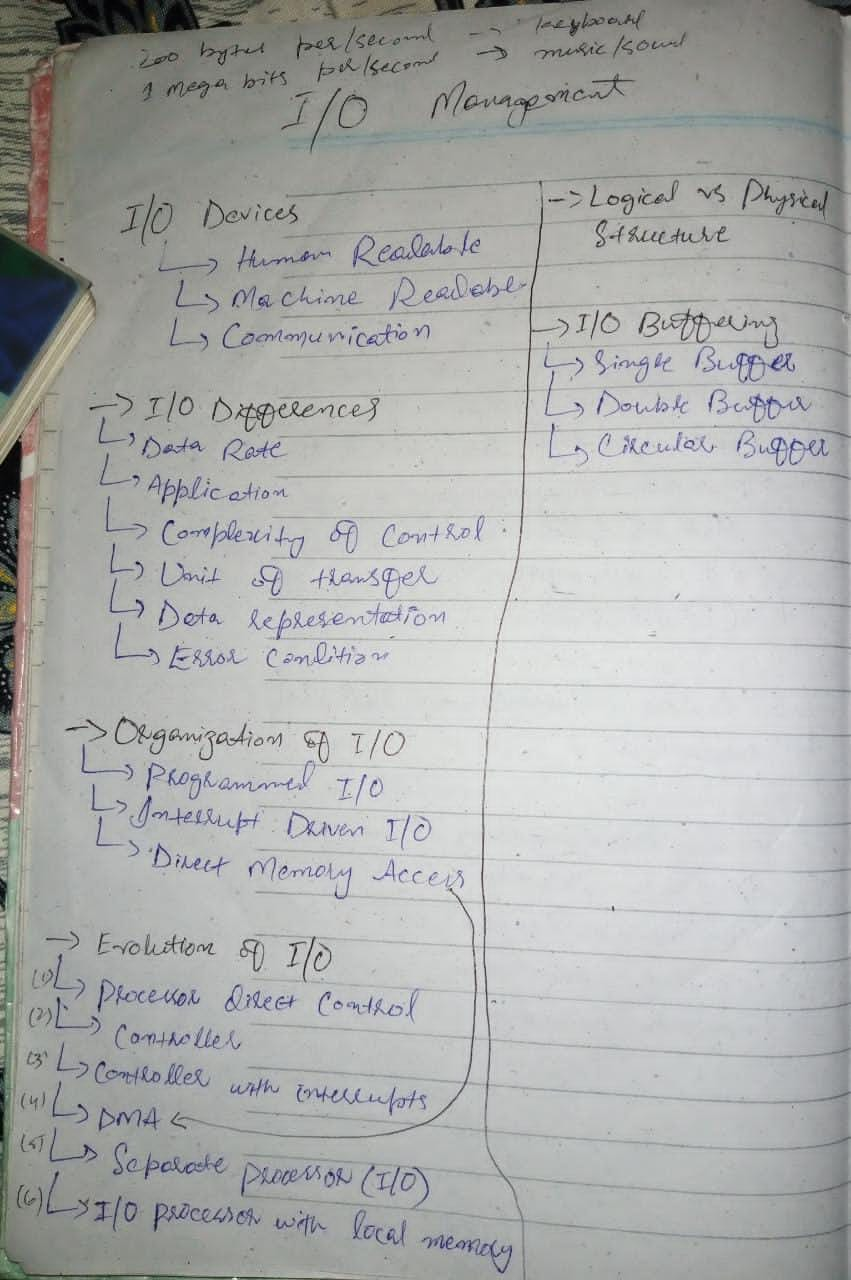 200 bytes per/second -> keyboard
1 mega bits per/second -> music/sound
I/O Management
I/O Devices
Human Readable
Machine Readable
Communication
-> I/O Differences
Data Rate
Application
Complexity of Control
Unit of transfer
Data representation
Error Condition
-> Organization of I/O
Programmed I/O
Interrupt Driven I/O
Direct Memory Access
-> Evolution of I/O
(1) Processor direct Control
(2) Controller
(3) Controller with interrupts
(4) DMA
(5) Separate processor (I/O)
(6) I/O processor with local memory
-> Logical vs Physical
Structure
-> I/O Buffering
Single Buffer
Double Buffer
Circular Buffer